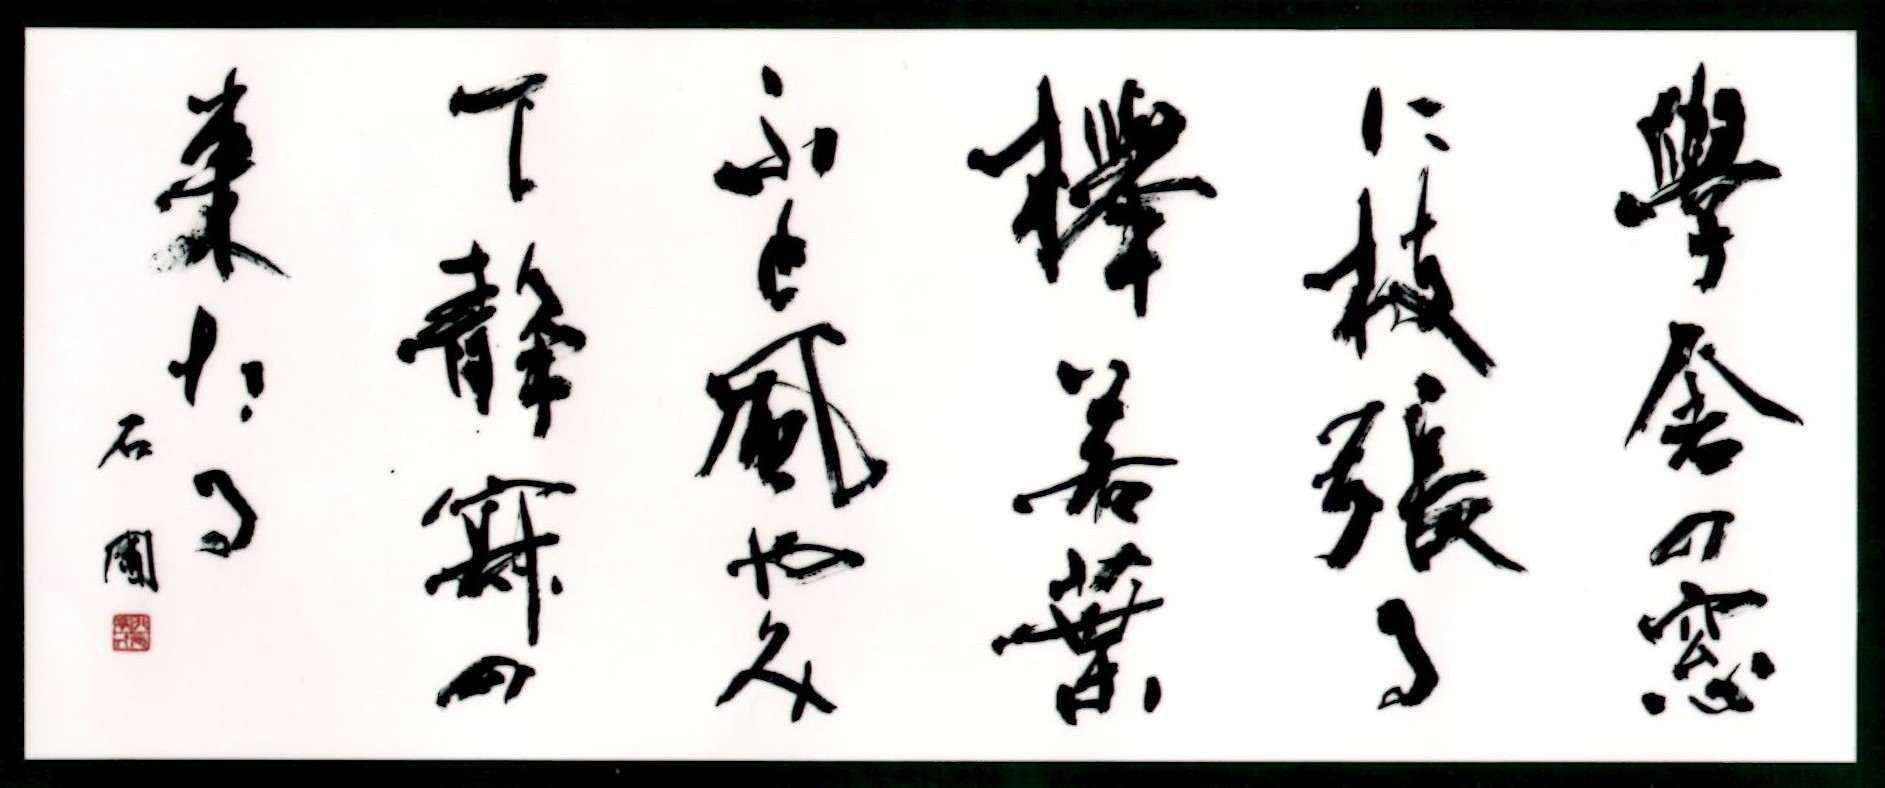 學舎の窓
に枝張る
欅若葉
ふと風やみ
て静寂の
来たる
石